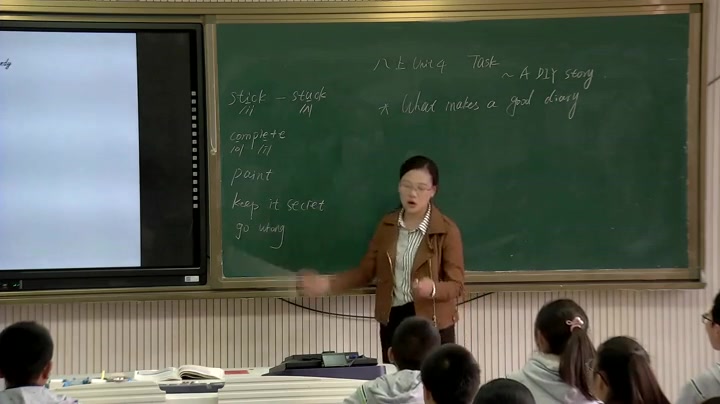 八上 Unit 4 Task
~ A DIY story.
* What makes a good diary
stick - stuck
/ɪ/ /ʌ/
complete
/ə/ /iː/
paint
keep it secret
go wrong